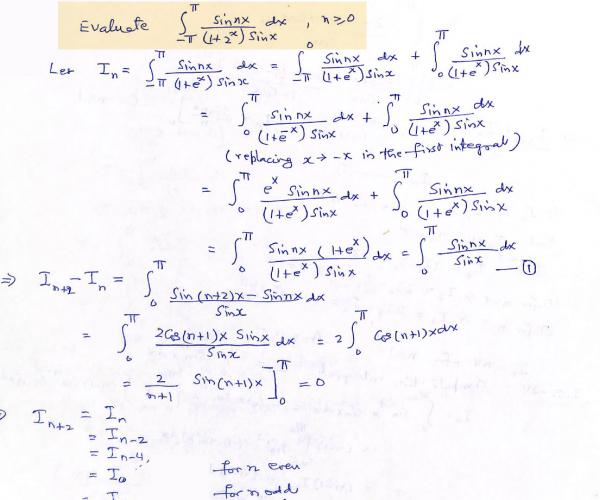 Evaluate ∫_{-π}^{π} sin nx / (1+2^x) sin x dx , n ≥ 0
Let I_n = ∫_{-π}^{π} sin nx / (1+e^x) sin x dx = ∫_{-π}^{0} sin nx / (1+e^x) sin x dx + ∫_{0}^{π} sin nx / (1+e^x) sin x dx
= ∫_{0}^{π} sin nx / (1+e^{-x}) sin x dx + ∫_{0}^{π} sin nx / (1+e^x) sin x dx
(replacing x → -x in the first integral)
= ∫_{0}^{π} e^x sin nx / (1+e^x) sin x dx + ∫_{0}^{π} sin nx / (1+e^x) sin x dx
= ∫_{0}^{π} sin nx (1+e^x) / (1+e^x) sin x dx = ∫_{0}^{π} sin nx / sin x dx — ①
⇒ I_{n+2} - I_n = ∫_{0}^{π} sin (n+2)x - sin nx / sin x dx
= ∫_{0}^{π} 2 cos (n+1)x sin x / sin x dx = 2 ∫_{0}^{π} cos (n+1)x dx
= 2 / n+1 sin (n+1)x ]_{0}^{π} = 0
I_{n+2} = I_n
= I_{n-2}
= I_{n-4}
= I_0 for n even
for n odd